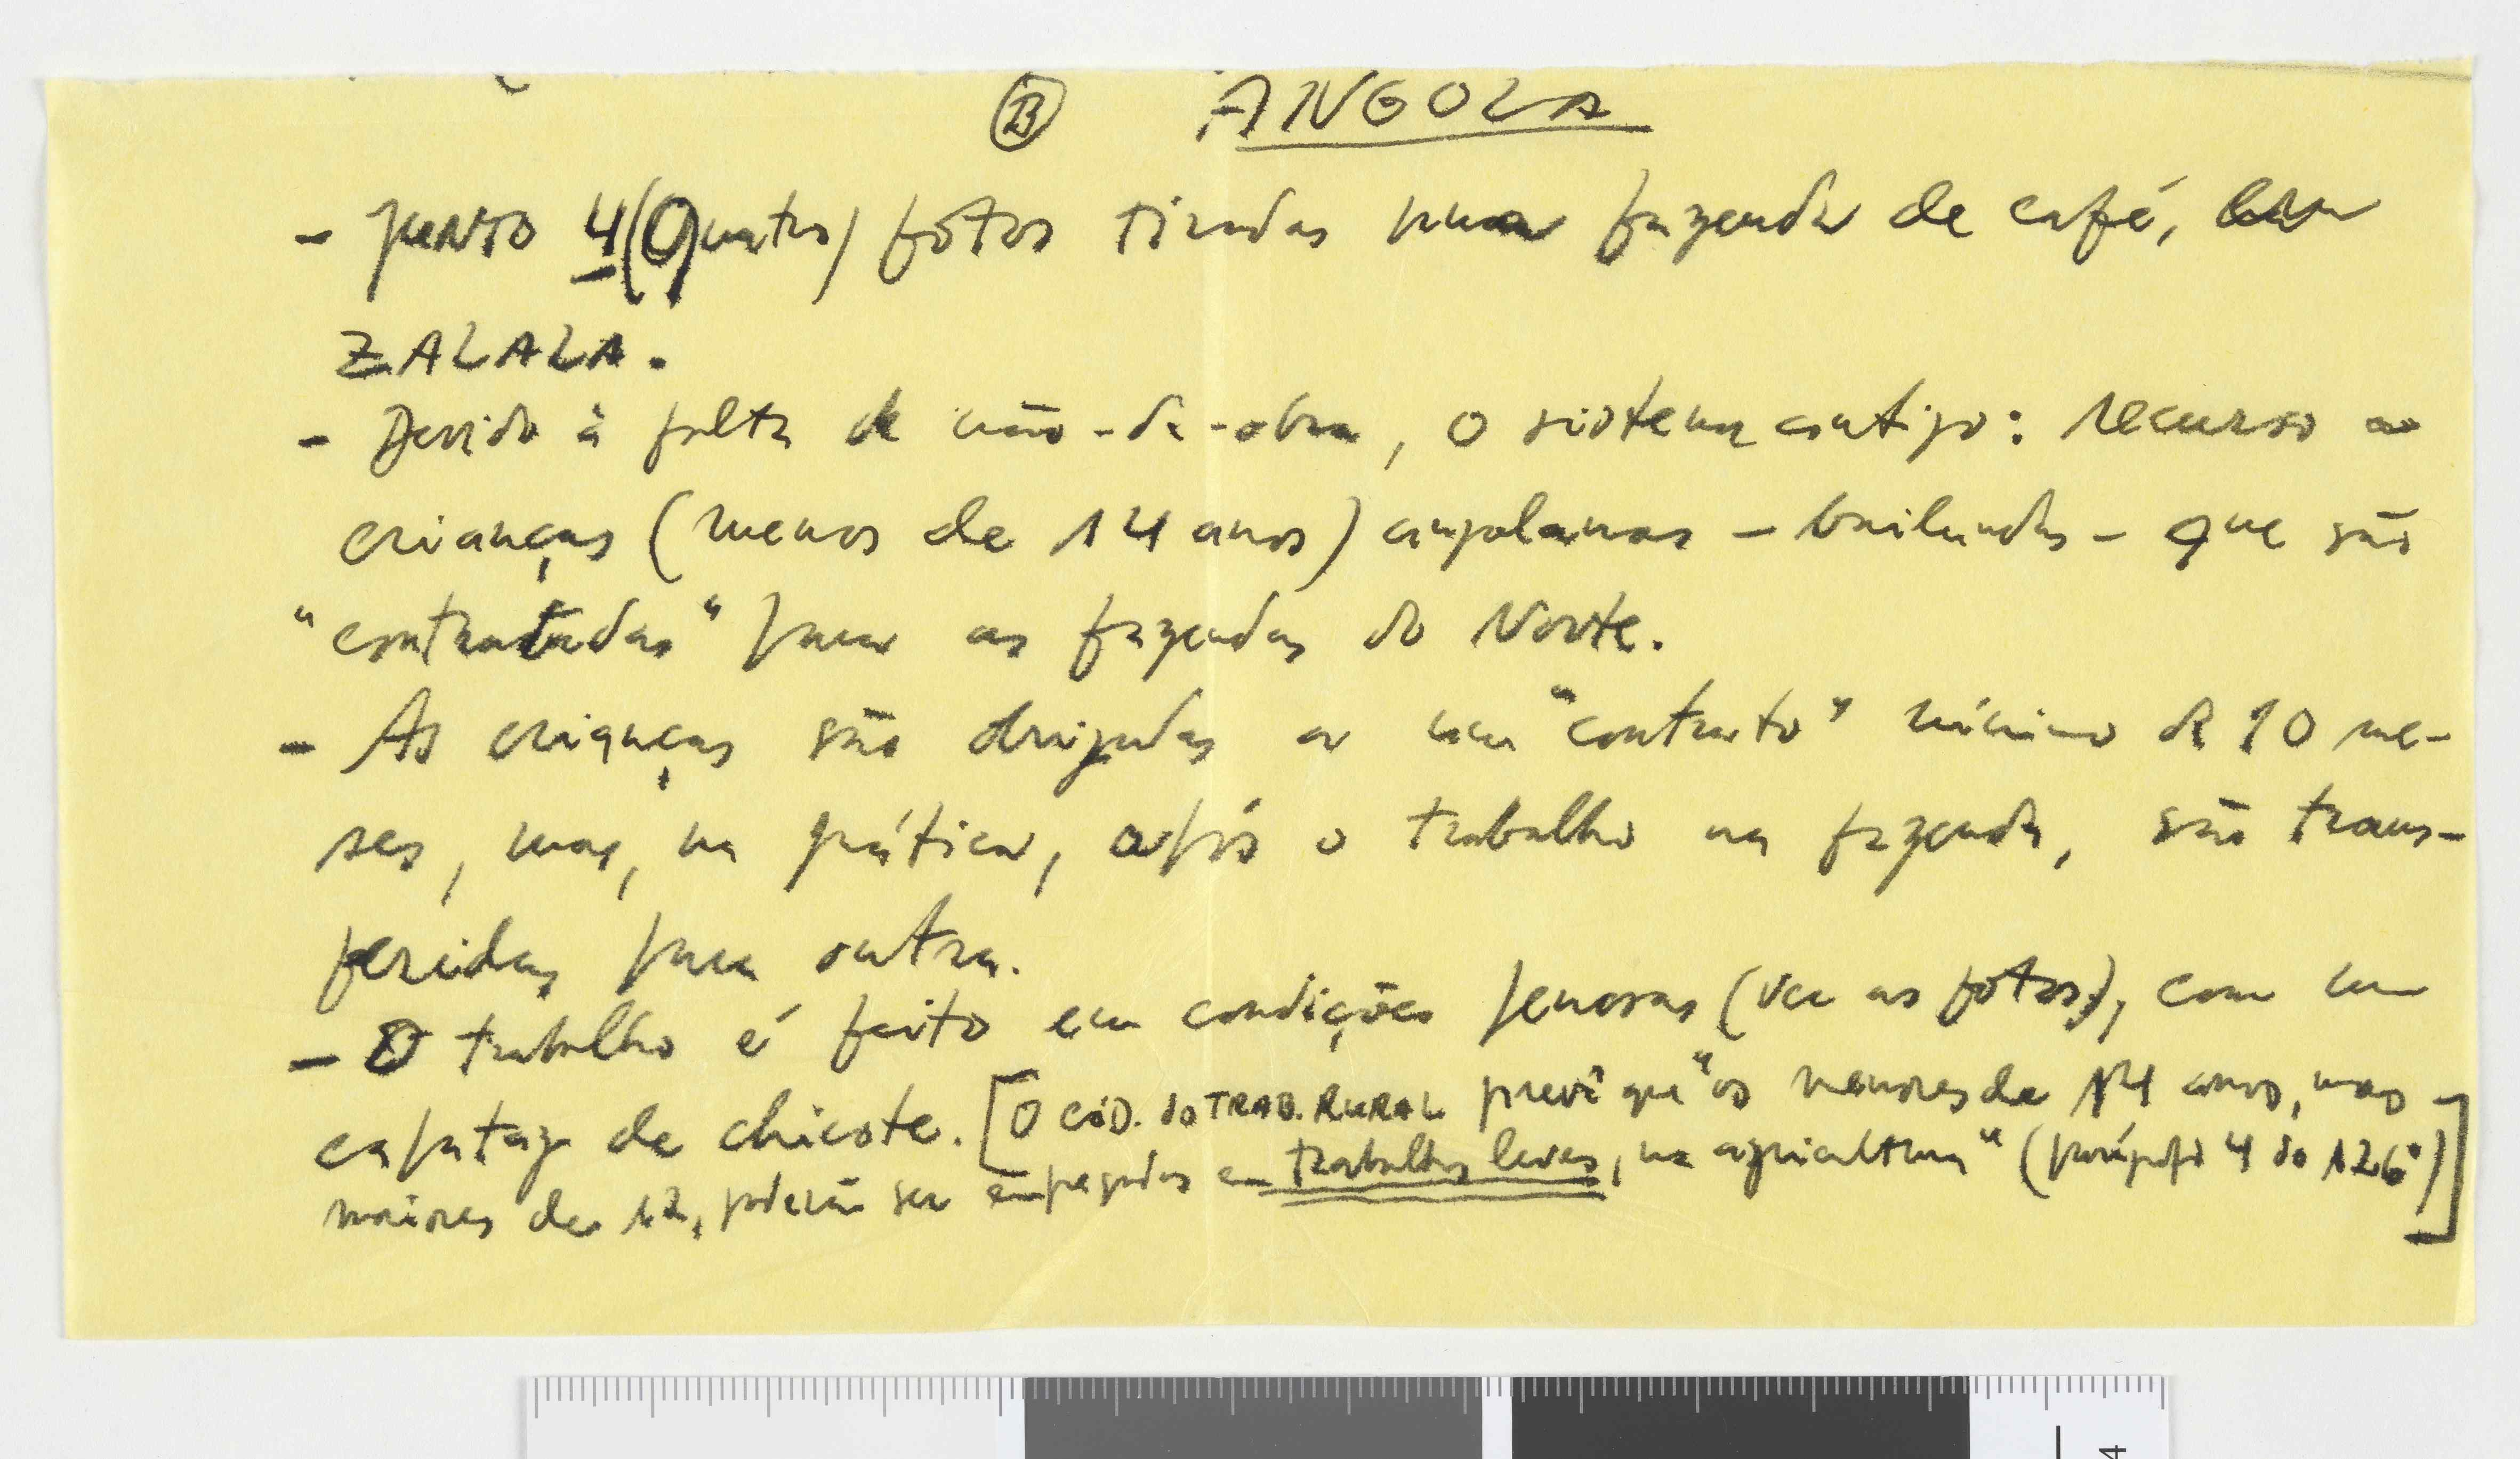 Ⓑ ANGOLA
- Junto 4 (Quatro) fotos tiradas numa fazenda de café, em
ZALALA.
- Devido à falta de mão-de-obra, o sistema antigo: recurso a
crianças (menos de 14 anos) angolanas - bailundas - que são
"contratadas" para as fazendas do Norte.
- As crianças são obrigadas a um "contrato" mínimo de 10 me-
ses, mas, na prática, após o trabalho na fazenda, são trans-
feridas para outra.
- O trabalho é feito em condições penosas (ver as fotos), com um
capataz de chicote. [O CÓD. do TRAB. RURAL prevê que "os menores de 14 anos, mas
maiores de 12, poderão ser empregados em trabalhos leves, na agricultura" (parágrafo 4 do 126º)]
4